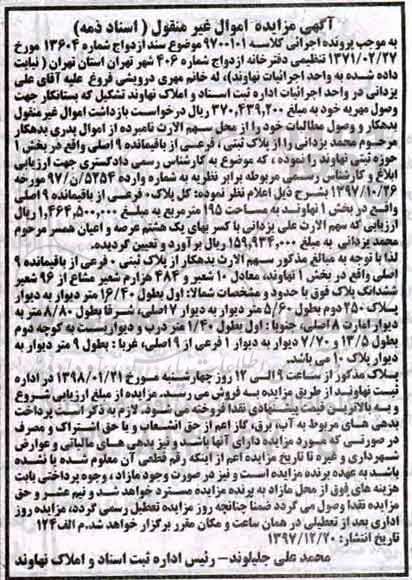 آگهی مزایده اموال غیر منقول ( اسناد ذمه)
به موجب پرونده اجرائی کلاسه ۹۷۰۰۱۰۱ موضوع سند ازدواج شماره ۱۳۶۰۴ مورخ
۱۳۷۱/۰۲/۲۷ تنظیمی دفترخانه ازدواج شماره ۴۰۶ شهر تهران استان تهران ( نیابت
داده شده به واحد اجرائیات نهاوند)، له خانم مهری درویشی فروغ علیه آقای علی
یزدانی در واحد اجرائیات اداره ثبت اسناد و املاک نهاوند تشکیل که بستانکار جهت
وصول مهریه خود به مبلغ ۳۷۰,۴۳۹,۲۰۰ ریال درخواست بازداشت اموال غیر منقول
بدهکار و وصول مطالبات خود را از محل سهم الارث نامبرده از اموال پدری بدهکار
مرحوم محمد یزدانی را از پلاک ثبتی ، فرعی از باقیمانده ۹ اصلی واقع در بخش ۱
حوزه ثبتی نهاوند را نموده ، که موضوع به کارشناس رسمی دادگستری جهت ارزیابی
ابلاغ و کارشناس رسمی مربوطه برابر نظریه به شماره وارده ۵۲۵۴/ن/۹۷ مورخه
۱۳۹۷/۱۰/۲۶ بشرح ذیل اعلام نظر نموده: کل پلاک۰ فرعی از باقیمانده ۹ اصلی
واقع در بخش ۱ نهاوند به مساحت ۱۹۵ مترمربع به مبلغ ۱,۴۶۴,۵۰۰,۰۰۰ ریال
ارزیابی که سهم الارث علی یزدانی با کسر بهای یک هشتم عرصه و اعیان همسر مرحوم
محمد یزدانی به مبلغ ۱۵۹,۹۳۴,۰۰۰ ریال برآورد و تعیین گردیده.
لذا با توجه به مبالغ مذکور سهم الارث بدهکار از پلاک ثبتی ۰ فرعی از باقیمانده ۹
اصلی واقع در بخش ۱ نهاوند، معادل ۱۰ شعیر و ۴۸۴ هزارم شعیر مشاع از ۹۶ شعیر
ششدانگ پلاک فوق با حدود و مشخصات شمالا: اول بطول ۱۶/۴۰ متر دیوار به دیوار
پلاک ۲۵۰ دوم بطول ۵/۶۰ متر دیوار به دیوار ۷ اصلی، شرقا بطول ۸/۸۰ متر به
دیوار امارت ۸ اصلی، جنوبا : اول بطول ۱/۴۰ متر درب و دیواریست به کوچه دوم
بطول ۱۳/۵ و ۷/۷۰ دیوار به دیوار ۱ فرعی از ۹ اصلی، غربا : بطول ۹ متر دیوار به
دیوار پلاک ۱۰ می باشد.
پلاک مذکور از ساعت ۹ الی ۱۲ روز چهارشنبه مورخ ۱۳۹۸/۰۱/۲۱ در اداره
ثبت نهاوند از طریق مزایده به فروش می رسد. مزایده از مبلغ ارزیابی شروع
و به بالاترین قیمت پیشنهادی نقدا فروخته می شود. لازم به ذکر است پرداخت
بدهی های مربوط به آب، برق، گاز اعم از حق انشعاب و یا حق اشتراک و مصرف
در صورتی که مورد مزایده دارای آنها باشد و نیز بدهی های مالیاتی و عوارض
شهرداری و غیره تا تاریخ مزایده اعم از اینکه رقم قطعی آن معلوم شده یا نشده
باشد به عهده برنده مزایده است و نیز در صورت وجود مازاد ، وجوه پرداختی بابت
هزینه های فوق از محل مازاد به برنده مزایده مسترد خواهد شد و نیم عشر و حق
مزایده نقدا وصول می گردد ضمنا چنانچه روز مزایده تعطیل رسمی گردد، مزایده روز
اداری بعد از تعطیلی در همان ساعت و مکان مقرر برگزار خواهد شد.م الف۱۲۴
تاریخ انتشار: ۱۳۹۷/۱۲/۲۰
محمد علی جلیلوند – رئیس اداره ثبت اسناد و املاک نهاوند